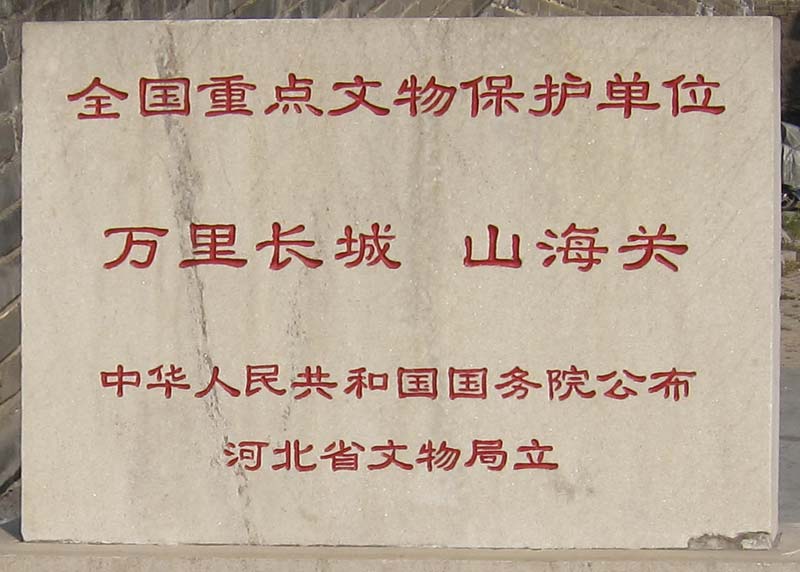 全国重点文物保护单位
万里长城 山海关
中华人民共和国国务院公布
河北省文物局立